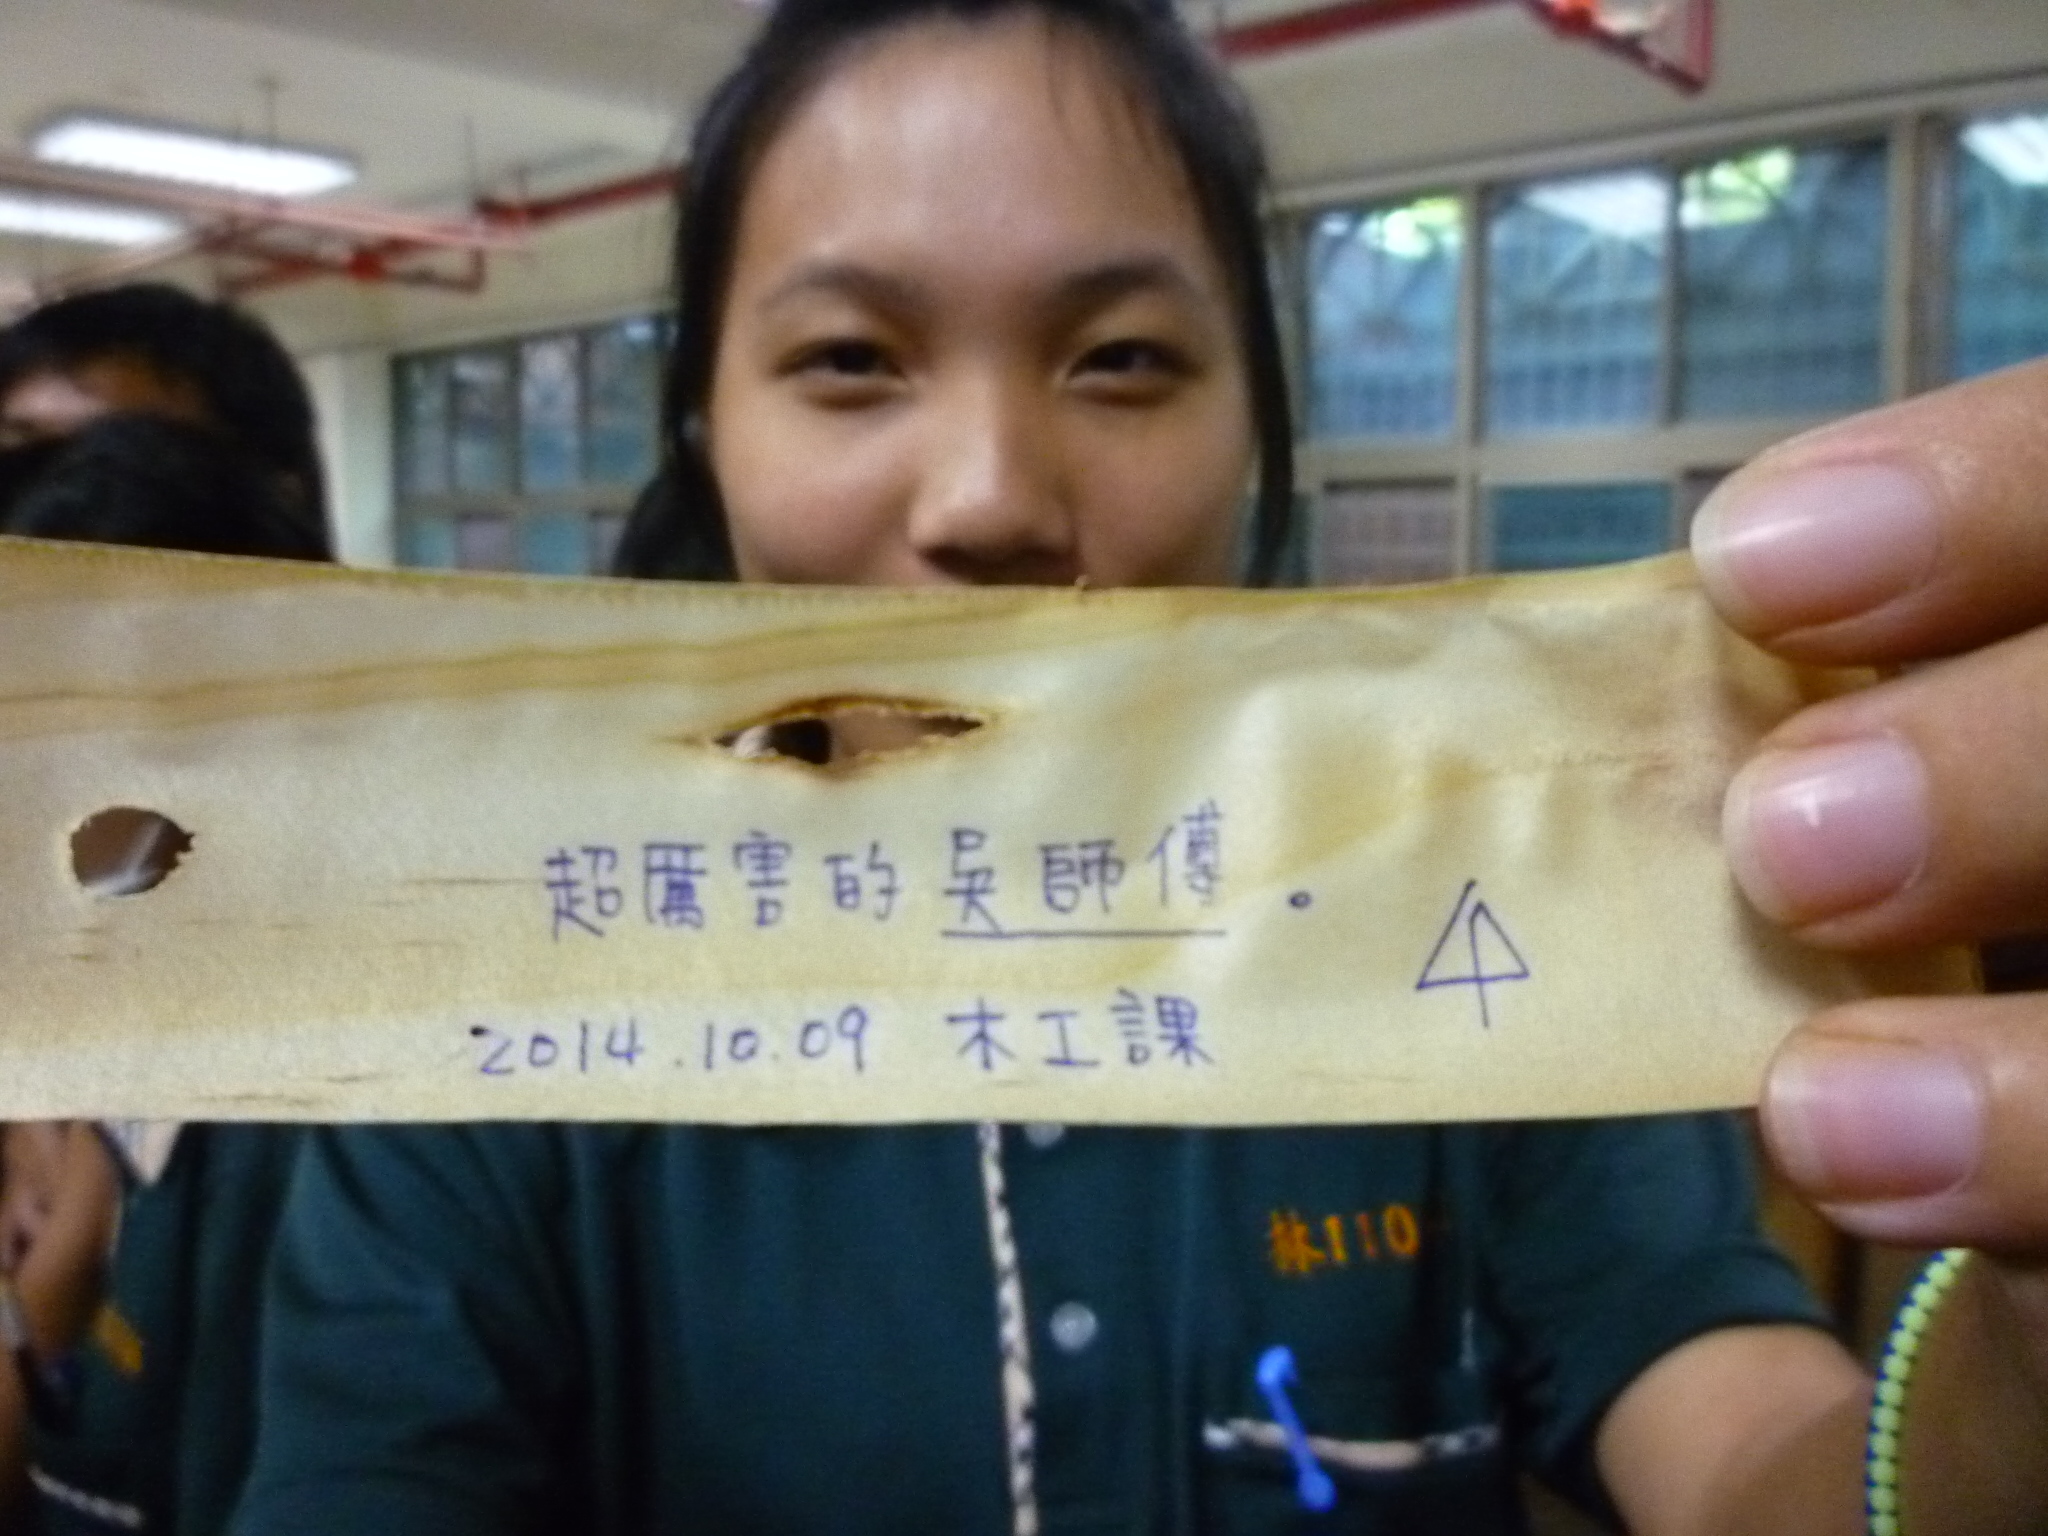 超厲害的吳師傅。
2014.10.09 木工課
林110